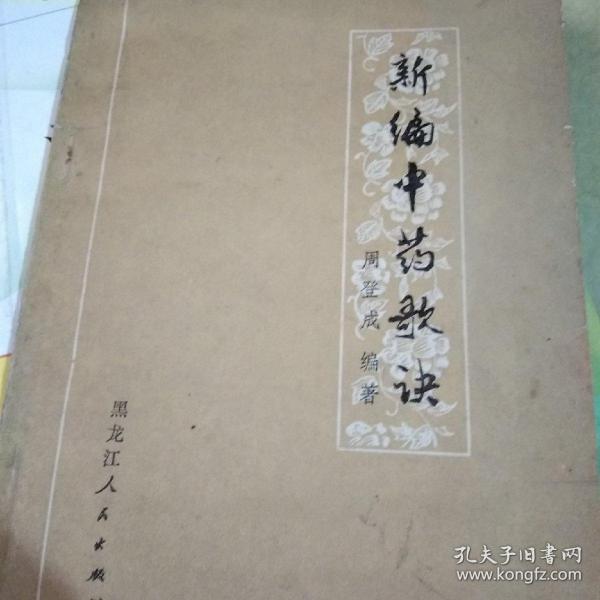 新编中药歌诀
周登成 编著
黑龙江人民出版
孔夫子旧书网
www.kongfz.com